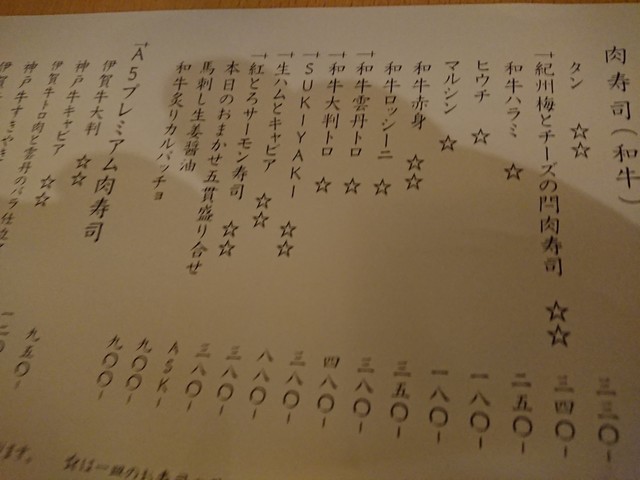 肉寿司（和牛）
タン ☆☆ 三三〇-
紀州梅とチーズの閂肉寿司 ☆☆ 三四〇-
和牛ハラミ ☆ 二五〇-
ヒウチ ☆ 一八〇-
マルシン ☆ 一八〇-
和牛赤身 ☆☆ 三五〇-
和牛ロッシーニ ☆ 三八〇-
和牛雲丹トロ ☆ 四八〇-
和牛大判トロ ☆ 三八〇-
SUKIYAKI ☆☆ 八八〇-
生ハムとキャビア ☆☆ 三八〇-
紅とろサーモン寿司 ☆☆ 三八〇-
本日のおまかせ五貫盛り合せ ASK-
馬刺し生姜醤油 九〇〇-
和牛炙りカルパッチョ 九〇〇-
A5プレミアム肉寿司
伊賀牛大判 ☆☆ 九五〇-
神戸牛キャビア ☆☆
伊賀牛トロ肉と雲丹のバラ仕立て
神戸牛すきやき
伊賀